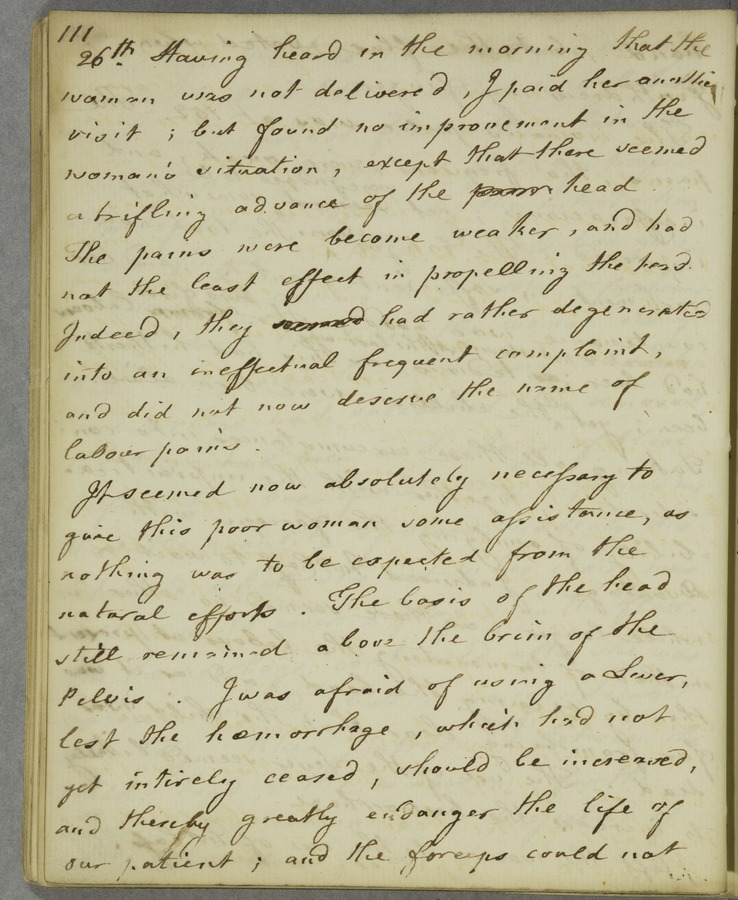 111
26th. Having heard in the morning that the
woman was not delivered, I paid her another
visit ; but found no improvement in the
woman's situation, except that there seemed
a trifling advance of the head
The pains were become weaker, and had
not the least effect in propelling the head.
Indeed, they seemed had rather degenerated
into an ineffectual frequent complaint,
and did not now deserve the name of
labour pains.
It seemed now absolutely necessary to
give this poor woman some assistance, as
nothing was to be expected from the
natural efforts. The basis of the head
still remained above the brim of the
Pelvis. I was afraid of using a Lever,
lest the hæmorrhage, which had not
yet intirely ceased, should be increased,
and thereby greatly endanger the life of
our patient ; and the forceps could not